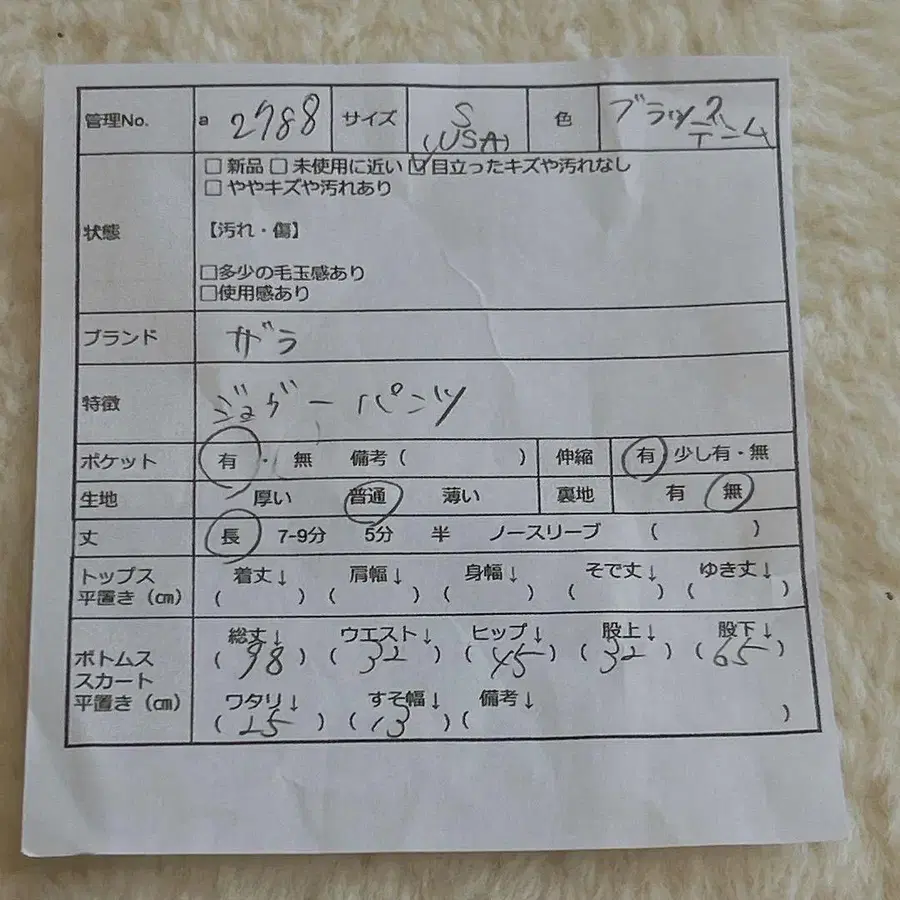 管理No. a 2788 サイズ S (USA) 色 ブラック デニム
状態
□ 新品 □ 未使用に近い ☑ 目立ったキズや汚れなし
□ ややキズや汚れあり
【汚れ・傷】
□多少の毛玉感あり
□使用感あり
ブランド ザラ
特徴 ジョガーパンツ
ポケット 有・無 備考 ( ) 伸縮 有 少し有・無
生地 厚い 普通 薄い 裏地 有 無
丈 長 7-9分 5分 半 ノースリーブ ( )
トップス
平置き（㎝）
着丈↓ 肩幅↓ 身幅↓ そで丈↓ ゆき丈↓
( ) ( ) ( ) ( ) ( )
ボトムス
スカート
平置き（㎝）
総丈↓ ウエスト↓ ヒップ↓ 股上↓ 股下↓
(98) (32) (45) (32) (65)
ワタリ↓ すそ幅↓ 備考↓
(25) (13) ( )